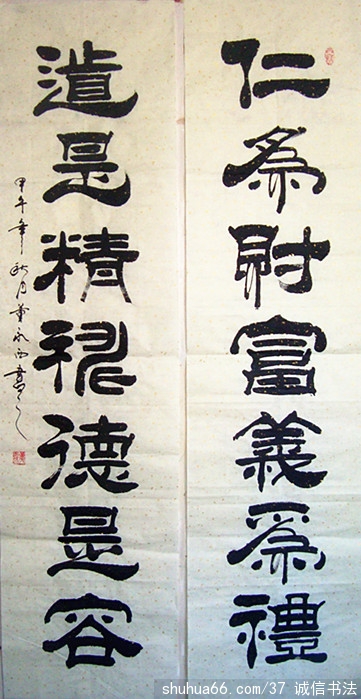 仁為財富義為禮
道是精神德是容
甲午年秋月董永西書
shuhua66.com/37 诚信书法